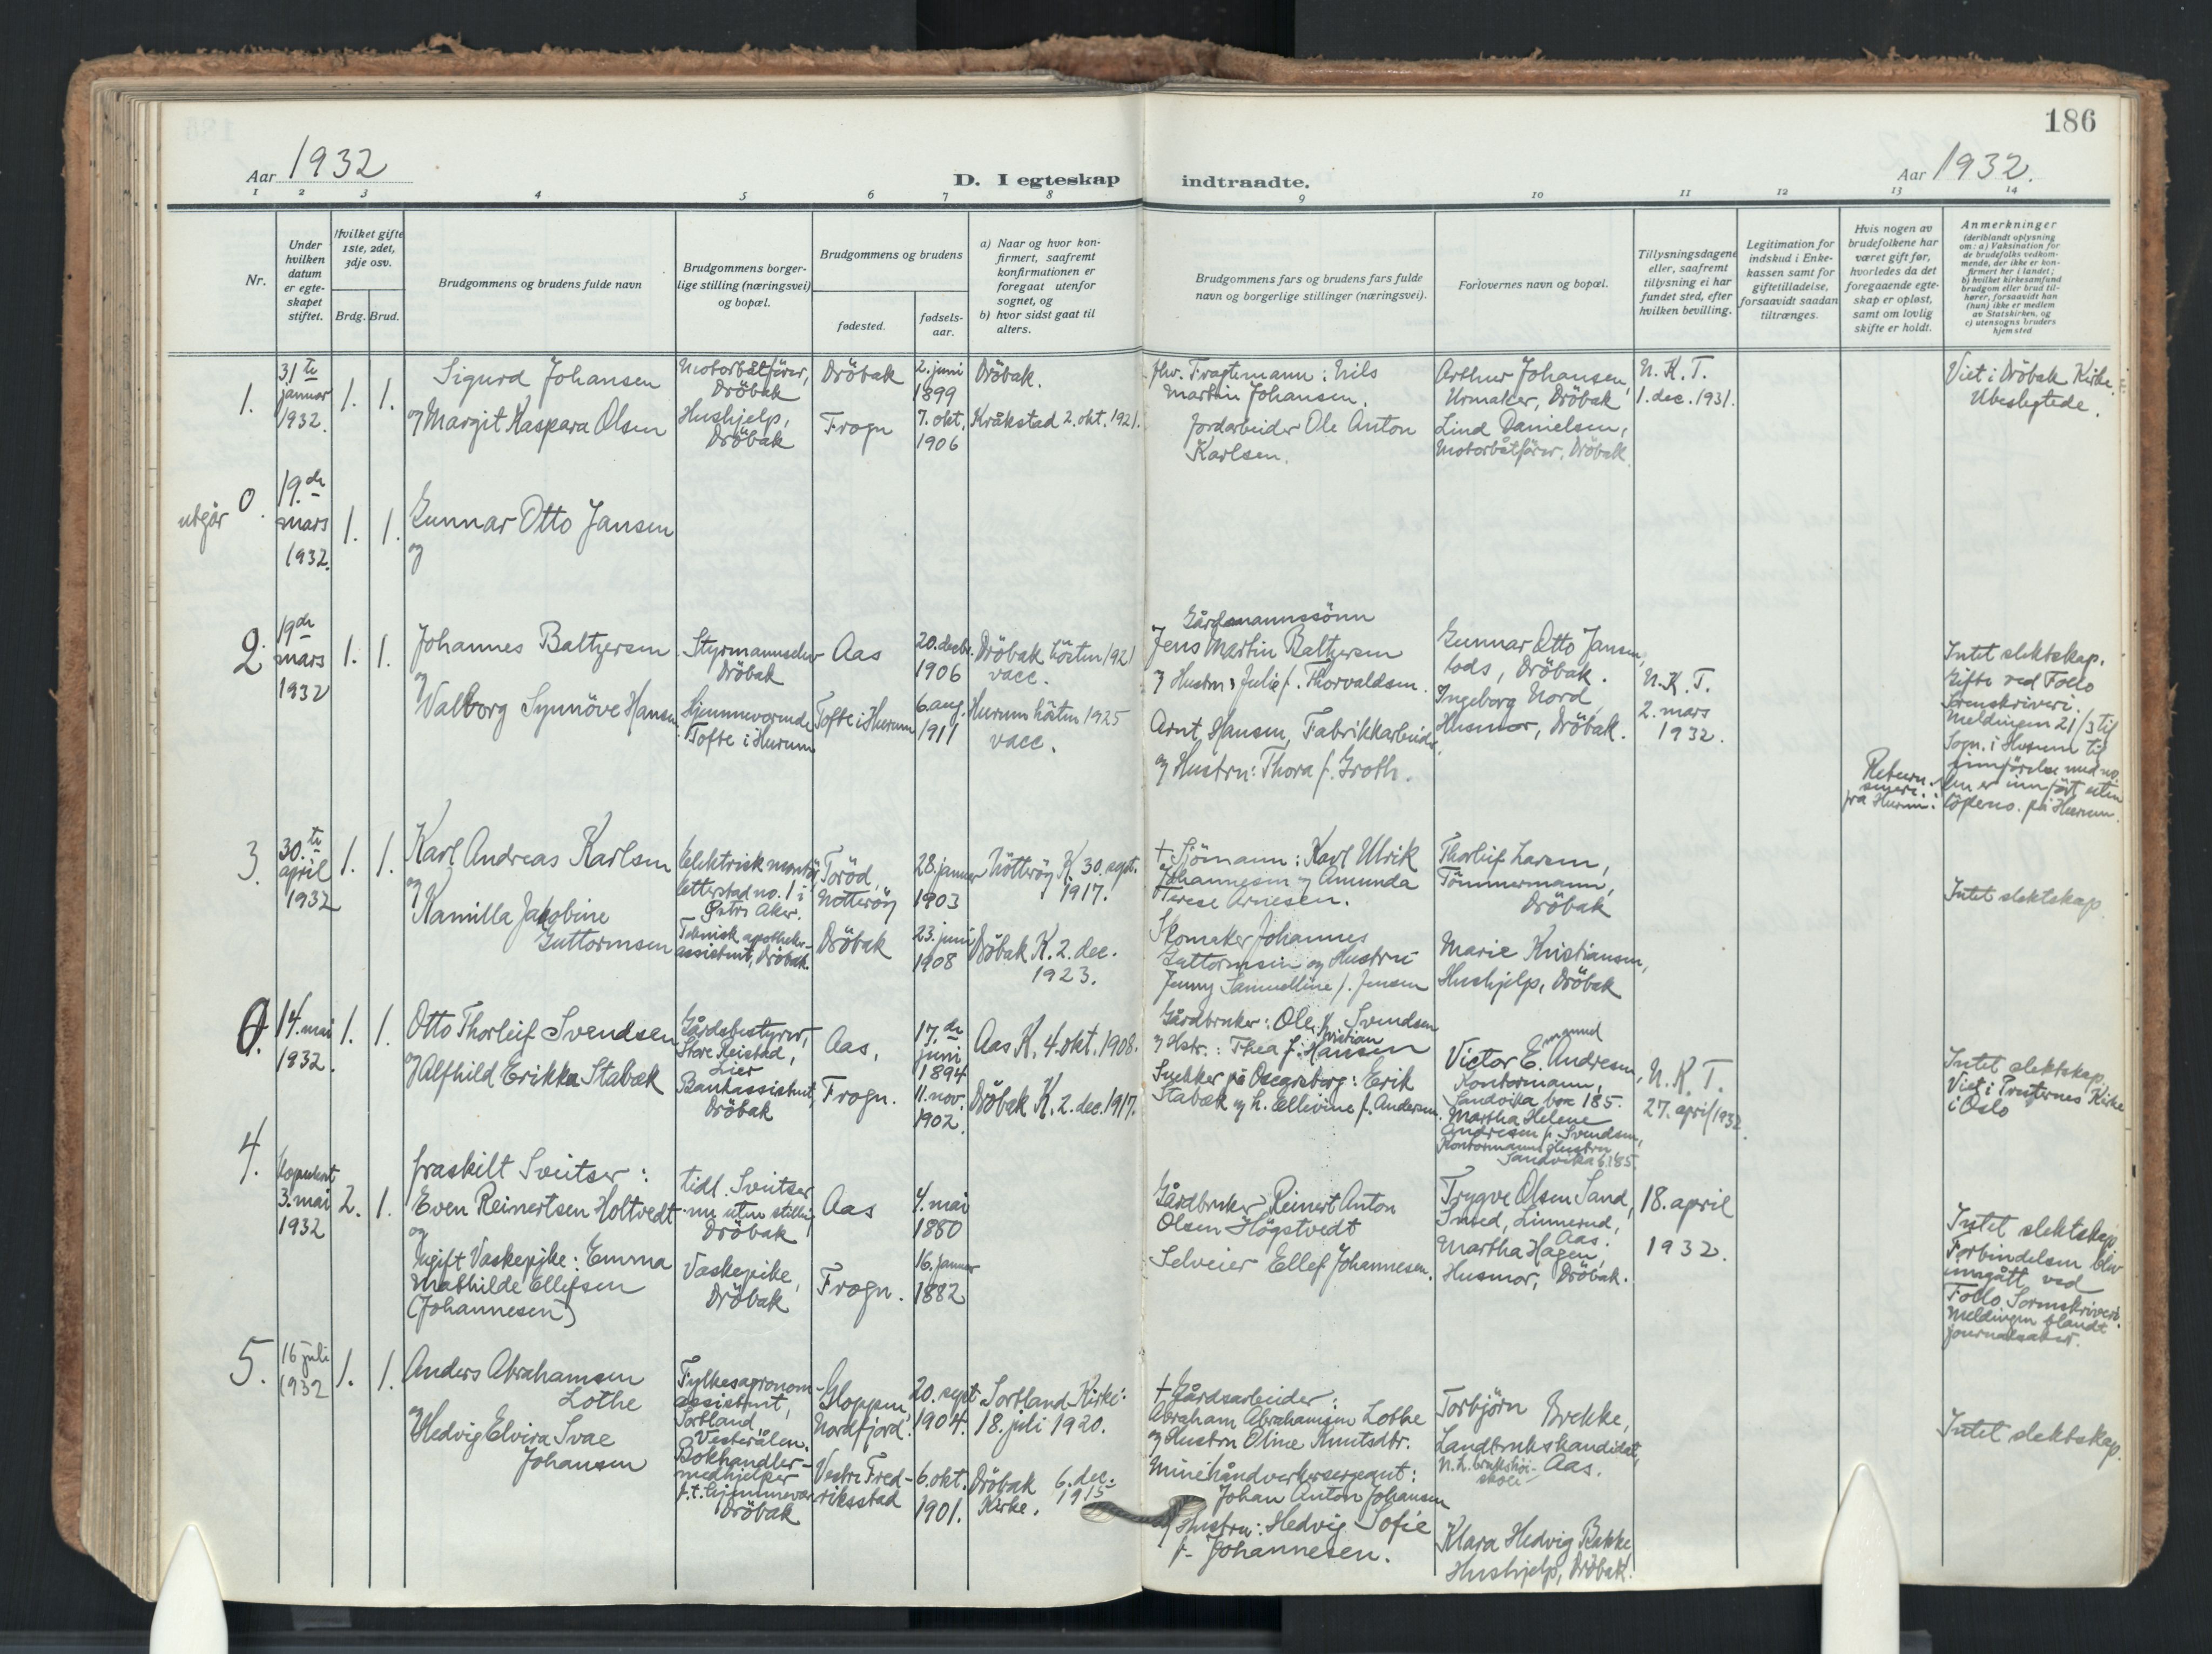 186
Aar 1932
D. I egteskap indtraadte.
Aar 1932.
1 2 3 4 5 6 7 8 9 10 11 12 13 14
Nr.
Under
hvilken
datum
er egte-
skapet
stiftet.
Hvilket gifte
1ste, 2det,
3dje osv.
Brdg. Brud.
Brudgommens og brudens fulde navn
Brudgommens borger-
lige stilling (næringsvei)
og bopæl.
Brudgommens og brudens
fødested.
fødsels-
aar.
a) Naar og hvor kon-
firmert, saafremt
konfirmationen er
foregaat utenfor
sognet, og
b) hvor sidst gaat til
alters.
Brudgommens fars og brudens fars fulde
navn og borgerlige stillinger (næringsvei).
Forlovernes navn og bopæl.
Tillysningsdagene
eller, saafremt
tillysning ei har
fundet sted, efter
hvilken bevilling.
Legitimation for
indskud i Enke-
kassen samt for
giftetilladelse,
forsaavidt saadan
tiltrænges.
Hvis nogen av
brudefolkene har
været gift før,
hvorledes da det
foregaaende egte-
skap er opløst,
samt om lovlig
skifte er holdt.
Anmerkninger
(deriblandt oplysning
om: a) Vaksination for
de brudefolks vedkom-
mende, der ikke er kon-
firmert her i landet;
b) hvilket kirkesamfund
brudgom eller brud til-
hører, forsaavidt han
(hun) ikke er medlem
av Statskirken, og
c) utensogns bruders
hjemsted
1.
31te
januar
1932.
1. 1.
Sigurd Johansen
og Margit Kaspara Olsen
Motorbåtförer,
Dröbak
Hushjelp,
Dröbak
Dröbak
Frogn
2. juni
1899
7. okt.
1906
Dröbak.
Kråkstad 2. okt. 1921.
fhv. Fragtmann: Nils
Martin Johansen.
Jordarbeider Ole Anton
Karlsen.
Arthur Johansen,
Urmaker, Dröbak
Lind Danielsen,
Motorbåtförer, Dröbak.
N. K. T.
1. dec. 1931.
Viet i Dröbak Kirke.
Ubeslegtede.
utgår 0.
19.de
mars
1932.
1. 1.
Gunnar Otto Jansen
og
2.
19de
mars
1932
1. 1.
Johannes Baltzersen
og
Walborg Synnöve Hansen
Styrmannselev
Dröbak
Hjemmeværende
Tofte i Hurum
Aas
Tofte i Hurum
20. decbr.
1906
6. aug.
1911
Dröbak hösten 1921
vacc.
Hurum hösten 1925
vacc.
Gårdmannssönn
Jens Martin Baltzersen
og Hustru: Julie f. Thorvaldsen.
Arnt Hansen, Fabrikkarbeider,
og Hustru: Thora f. Groth.
Gunnar Otto Jansen,
lods, Dröbak.
Ingeborg Nord
Husmor, Dröbak.
N. K. T.
2. mars
1932.
Retur
fra Hurum:
Intet slektskap.
Gifte ved Follo
Sorenskriveri.
Meldingen 21/3 til
Sogn. i Hurum til
innförelse med no.
Den er innfört uten
löpeno. på Hurum.
3.
30.te
april
1932
1. 1.
Karl Andreas Karlsen
og
Kamilla Jakobine
Guttormsen
Elektrisk montör
Letterstad no. 1 i
Östre Aker.
Teknisk apotheker-
assistent, Dröbak.
Toröd,
Nötteröy
Dröbak
28. januar
1903
23. juni
1908
Nötteröy K. 30. sept.
1917.
Dröbak K. 2. dec.
1923.
+ Sjömann: Karl Ulrik
Johannesen og Amunda
Terese Arnesen.
Skomaker Johannes
Guttormsen og Hustru
Jenny Samueline f. Jensen
Thorleif Larsen,
Tömmermann,
Dröbak
Marie Kristiansen,
Hushjelp, Dröbak
Intet slektskap
0.
14. mai
1932.
1. 1.
Otto Thorleif Svendsen
og Alfhild Erikka Stabæk
Gårdsbestyrer,
Store Reistad,
Lier
Bankassistent,
Dröbak
Aas,
Frogn.
17.de
juni
1894
11. nov.
1902.
Aas K. 4. okt. 1908.
Dröbak K. 2. dec. 1917.
Gårdbruker: Ole Kristian Svendsen
og Hstr.: Thea f. Hansen
Snekker på Oscarsborg: Erik
Stabæk og h. Ellevine f. Andersen.
Victor E. Andresen,
Kontormann,
Sandvika box 185.
Martha Helene
Andresen f. Svendsen,
Kontormanns Hustru
Sandvika b. 185.
N. K. T.
27. april 1932.
Intet slektskap,
Viet i Prestenes Kirke
i Oslo
4.
Kopulert
3. mai
1932
2. 1.
fraskilt Sveitser:
Even Reinertsen Holtvedt
og
Ugift Vaskepike: Emma
Mathilde Ellefsen
(Johannesen)
tidl. Sveitser
nu uten stilling
Dröbak
Vaskepike,
Dröbak
Aas
Frogn.
4. mai
1880
16. januar
1882
Gårdbruker Reinert Anton
Olsen Högstvedt
Selveier Ellef Johannesen.
Trygve Olsen Sand,
Smed, Linnerud,
Aas.
Martha Hagen,
Husmor, Dröbak.
18. april
1932.
Intet slektskap
Forbindelsen blev
inngått ved
Follo Sorenskriveri.
Meldingen blandt
journalsaker.
5.
16 juli
1932
1. 1.
Anders Abrahamsen
Lothe
og Hedvig Elvira Svae
Johansen
Fylkesagronom-
assistent,
Sortland
Vesterålen.
Bokhandler-
medhjelper
f. t. hjemmevær.
Dröbak
Gloppen,
Nordfjord.
Vestre Fred-
riksstad
20. sept
1904.
6. okt.
1901.
Sortland Kirke:
18. juli 1920.
Dröbak 6. dec.
Kirke. 1915
+ Gårdsarbeider:
Abraham Abrahamsen Lothe
og Hustru Oline Knutsdtr.
Minehåndverkersergeant:
Johan Anton Johansen
og Hustru: Hedvig Sofie
f. Johannesen.
Torbjörn Brekke,
Landbrukskandidat,
N. L. brukshöi- Aas.
skole
Klara Hedvig Bakke,
Hushjelp, Dröbak.
Intet slektskap.